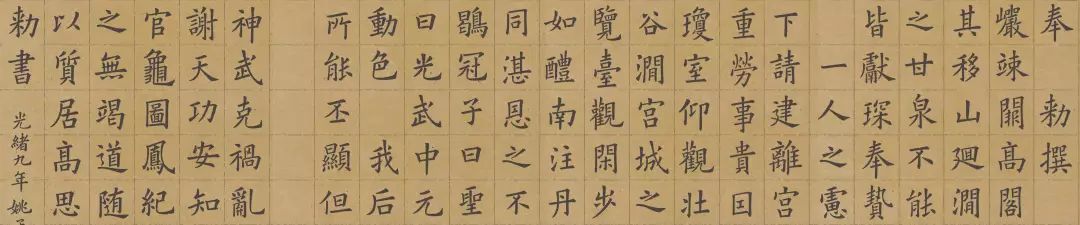 奉勅撰
巖竦闕高閣
其移山廻澗
之甘泉不能
皆獻琛奉贄
一人之憲
下請建離宮
重勞事貴囙
瓊室仰觀壯
谷澗宮城之
覽臺觀閑步
如醴南注丹
同湛恩之不
鶡冠子曰聖
曰光武中元
動色我后
所能丕顯但
神武克禍亂
謝天功安知
官龜圖鳳紀
之無竭道随
以質居高思
勅書
光緒九年姚